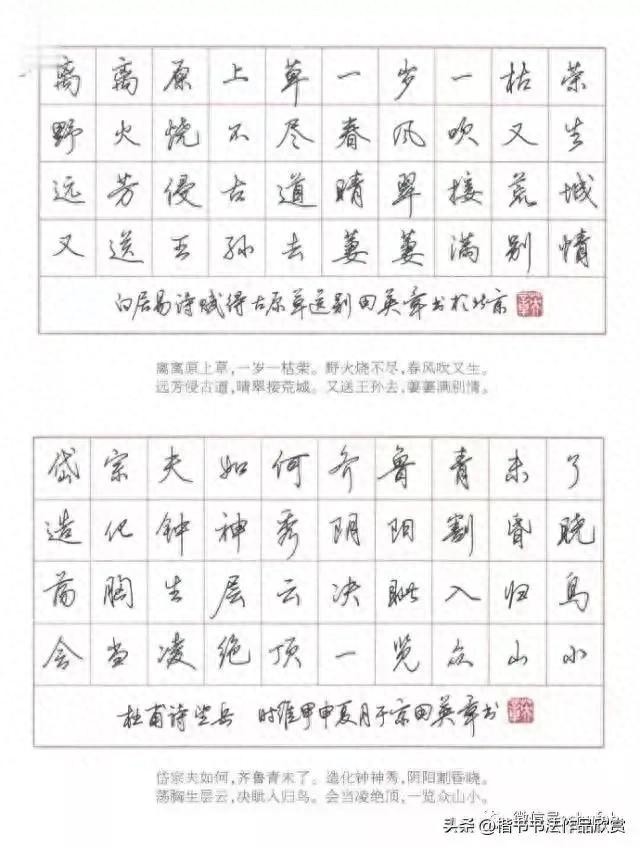 离离原上草一岁一枯荣
野火烧不尽春风吹又生
远芳侵古道晴翠接荒城
又送王孙去萋萋满别情
白居易诗赋得古原草送别田英章书于北京
离离原上草，一岁一枯荣。野火烧不尽，春风吹又生。
远芳侵古道，晴翠接荒城。又送王孙去，萋萋满别情。
岱宗夫如何齐鲁青未了
造化钟神秀阴阳割昏晓
荡胸生层云决眦入归鸟
会当凌绝顶一览众山小
杜甫诗望岳 时维甲申夏月于京田英章书
岱宗夫如何，齐鲁青未了。造化钟神秀，阴阳割昏晓。
荡胸生层云，决眦入归鸟。会当凌绝顶，一览众山小。
头条@楷书书法作品欣赏